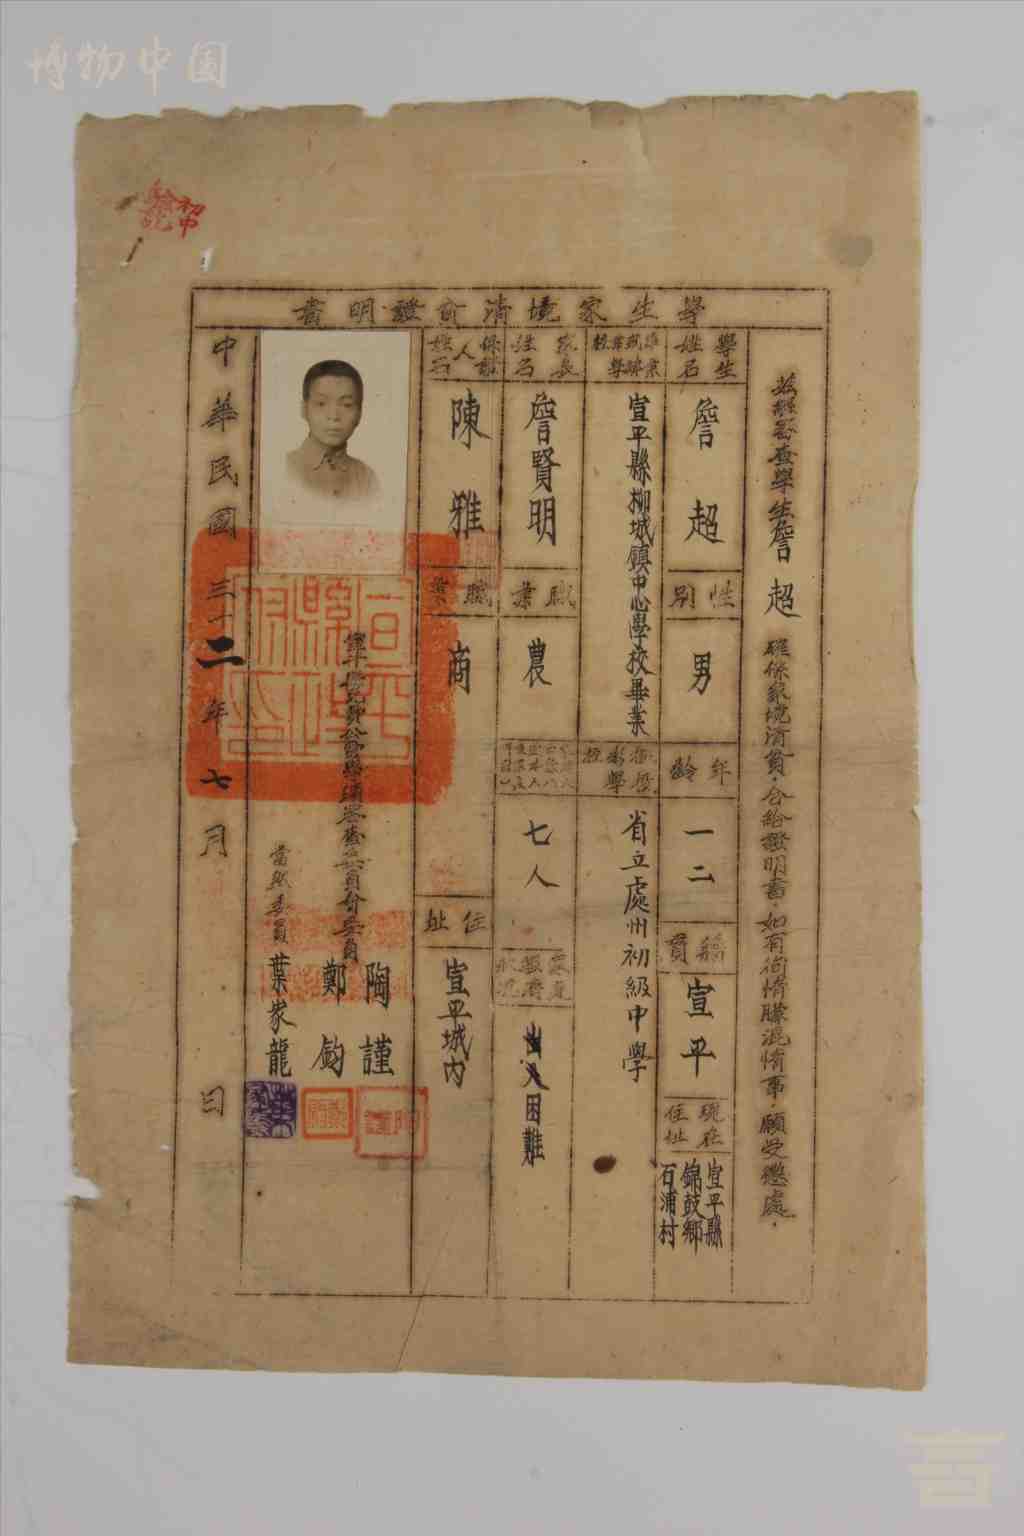 博物中国
初中
學生家境清貧證明書
茲經審查學生詹超確係家境清貧合給證明書如有徇情朦混情事願受懲處
學生姓名
詹超
性別
男
年齡
一二
籍貫
宣平
現在住址
宣平縣錦鼓鄉石浦村
宣平縣柳城鎮中心學校畢業
省立處州初級中學
家長姓名
詹賢明
職業
農
七人
家庭經濟狀況
困難
保證人姓名
陳雅
職業
商
住址
宣平城內
陶謹
鄭鈞
當然委員 葉家龍
中華民國三十二年七月 日
宣平縣政府印